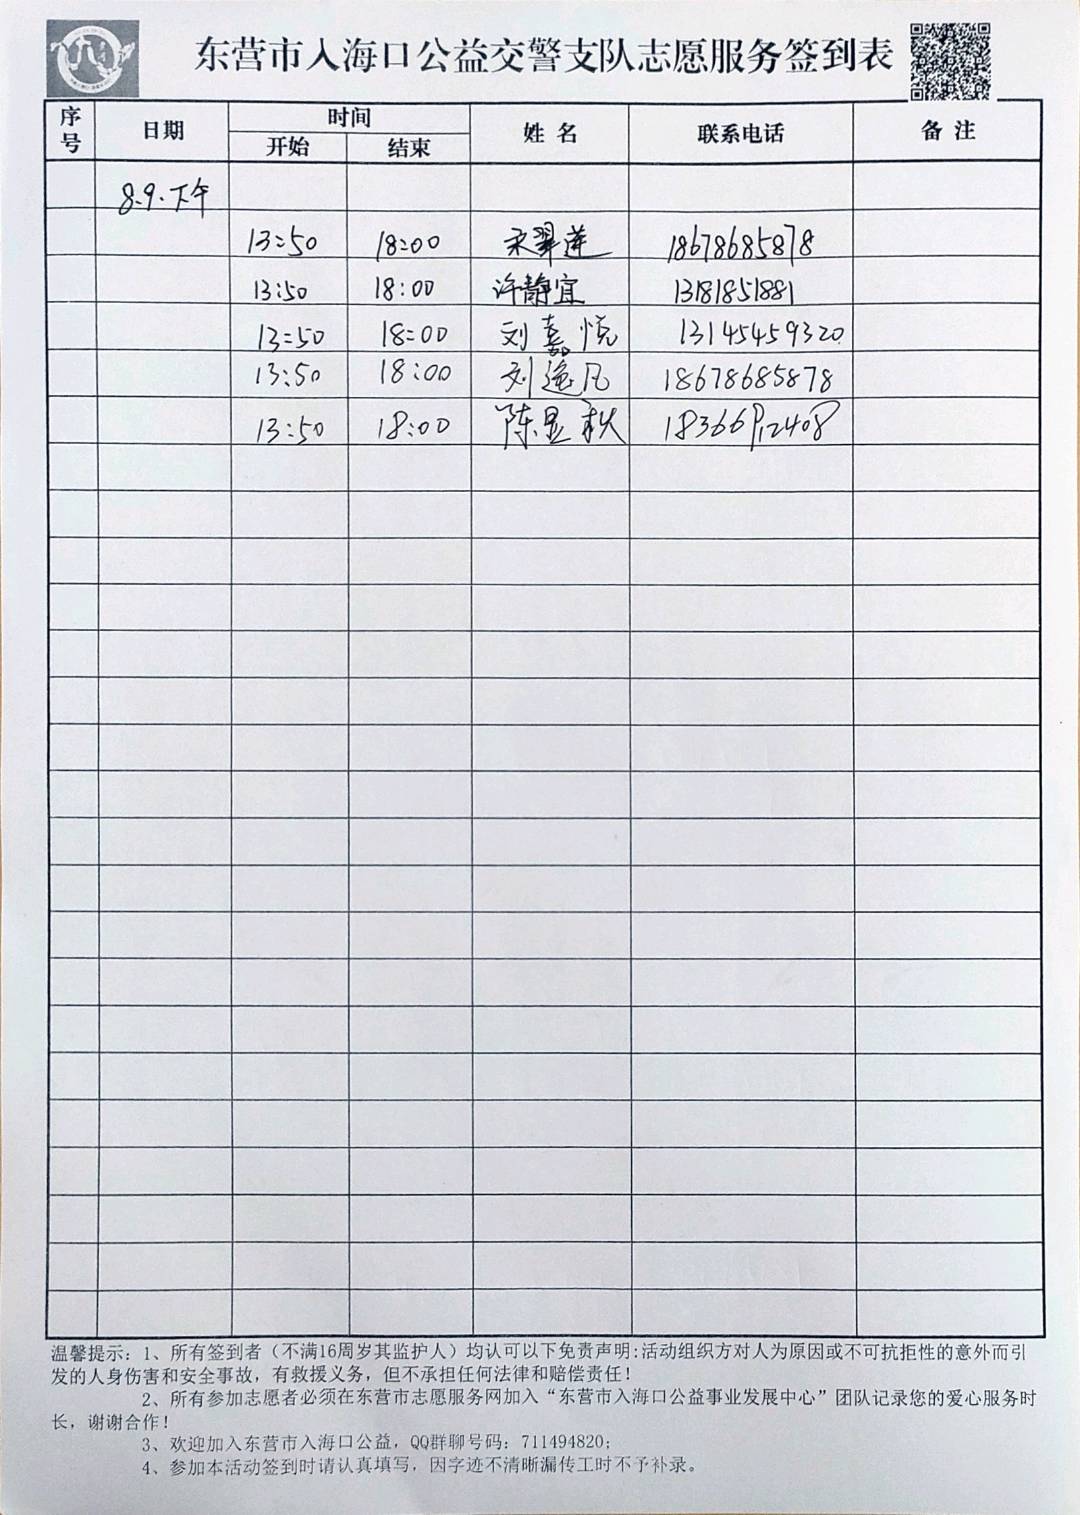 东营市入海口公益交警支队志愿服务签到表
序号 日期 时间 姓名 联系电话 备注
开始 结束
8.9.下午
13:50 18:00 18678685878
13:50 18:00 许静宜 13181851881
13:50 18:00 刘嘉悦 13145459320
13:50 18:00 刘逸凡 18678685878
13:50 18:00 陈显秋
温馨提示：1、所有签到者（不满16周岁其监护人）均认可以下免责声明:活动组织方对人为原因或不可抗拒性的意外而引
发的人身伤害和安全事故，有救援义务，但不承担任何法律和赔偿责任！
2、所有参加志愿者必须在东营市志愿服务网加入“东营市入海口公益事业发展中心”团队记录您的爱心服务时
长，谢谢合作！
3、欢迎加入东营市入海口公益，QQ群聊号码：711494820；
4、参加本活动签到时请认真填写，因字迹不清晰漏传工时不予补录。